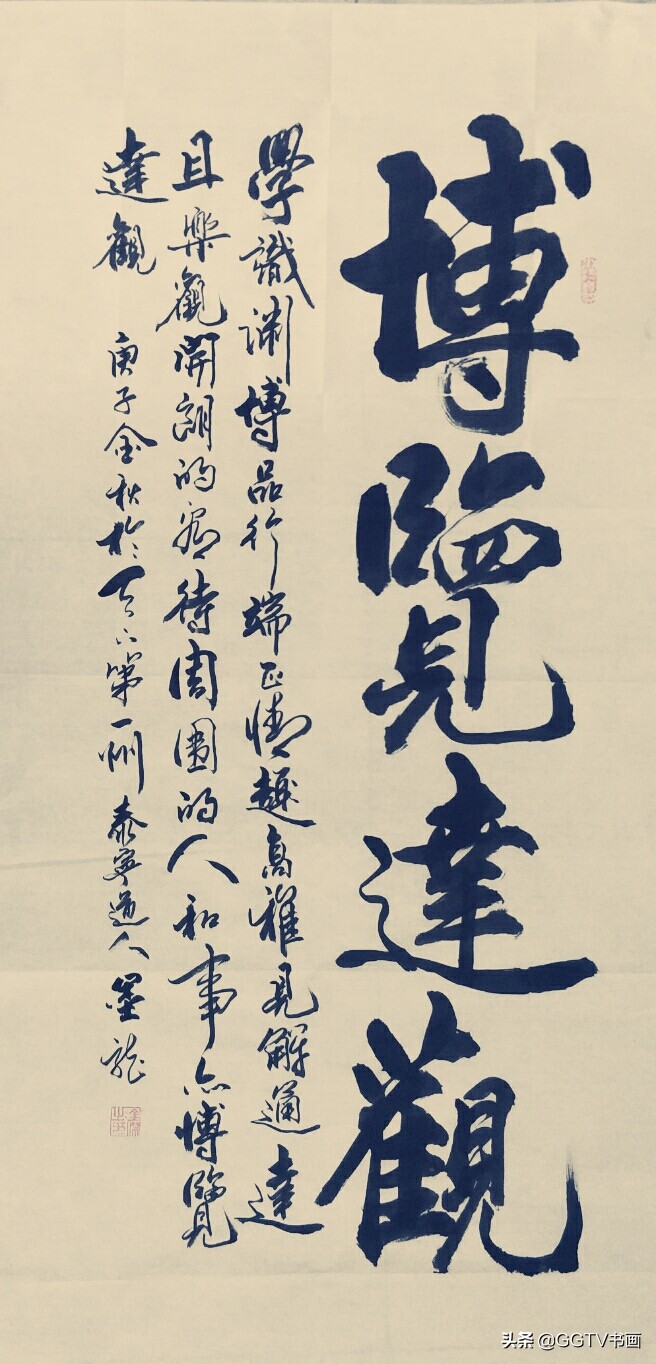 博覽達觀
學識淵博品行端正情趣高雅見解通達
且樂觀開朗的待周圍的人和事博覽
達觀 庚子金秋於天下第一州泰寧道人墨龍
头条 @GGTV书画